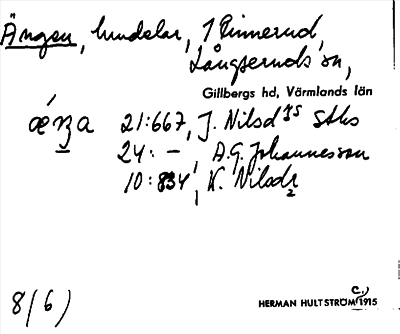 Ängen, hundelar, 1 Rinnerud,
Långseruds sn,
Gillbergs hd, Värmlands län
21:667, J. Nilsd
24: –, A.G. Johannesson
10:834, K. Nilsd
8/6)
HERMAN HULTSTRÖM c.) 1915